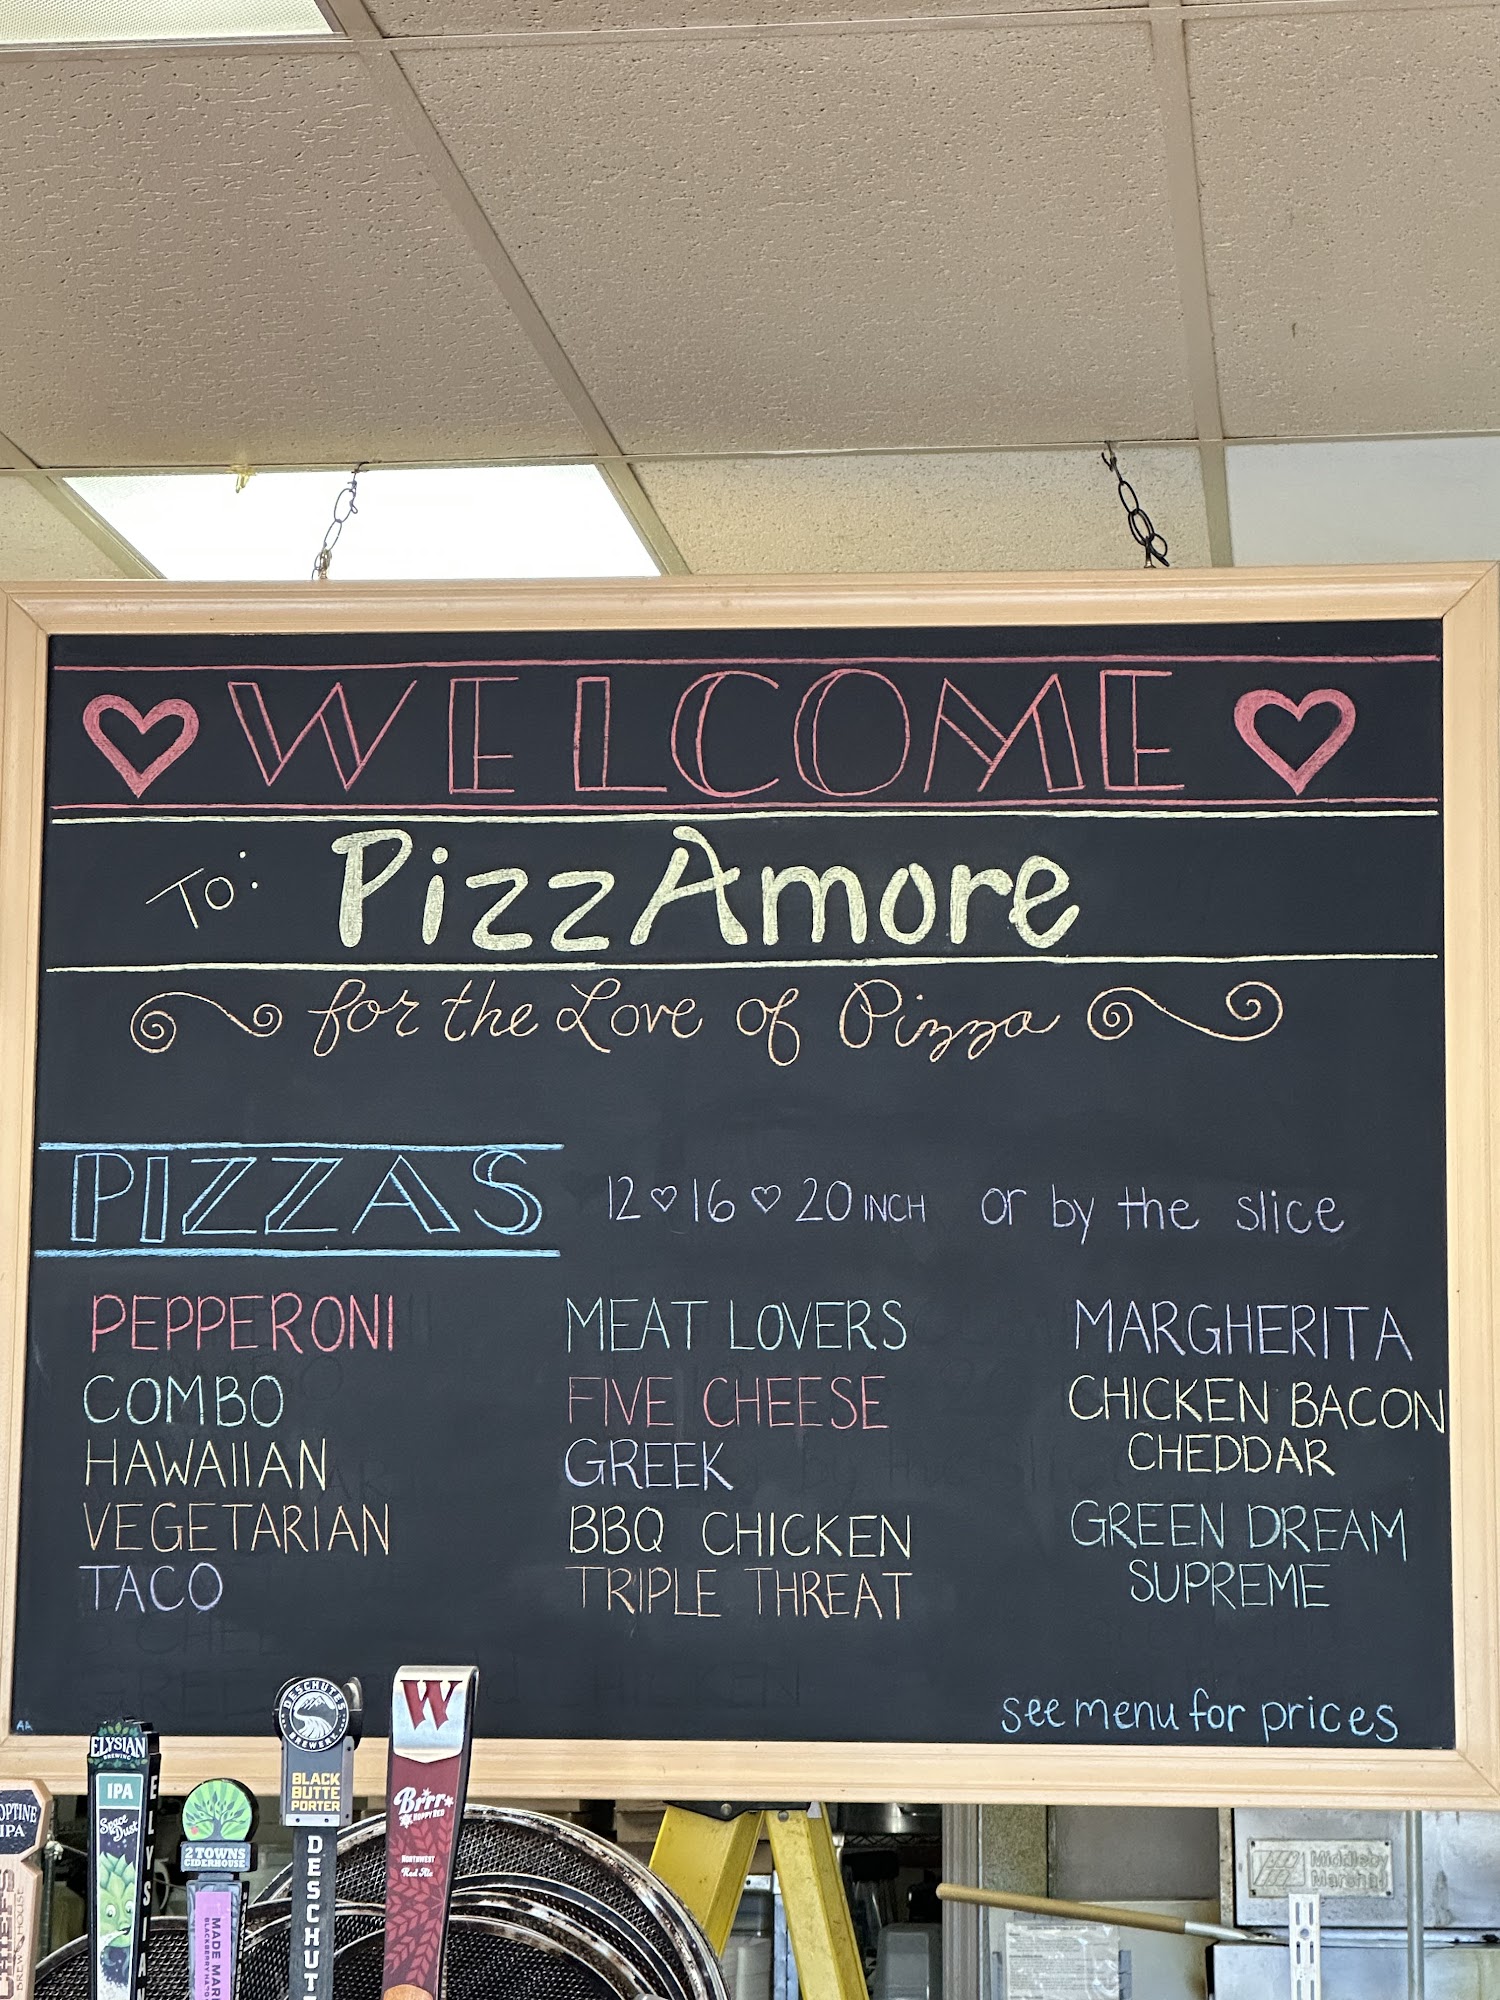 WELCOME
To: PizzAmore
for the Love of Pizza
PIZZAS
12 16 20 INCH or by the slice
PEPPERONI
COMBO
HAWAIIAN
VEGETARIAN
TACO
MEAT LOVERS
FIVE CHEESE
GREEK
BBQ CHICKEN
TRIPLE THREAT
MARGHERITA
CHICKEN BACON
CHEDDAR
GREEN DREAM
SUPREME
see menu for prices
AA
IPA
ELYSIAN
BREWING
IPA
Space
Dust
2 TOWNS
CIDERHOUSE
MADE
DESCHUTES
BREWERY
BLACK
BUTTE
PORTER
W
Brrr
HOPPY RED
NORTHWEST
Red Ale
Middleby
Marshall